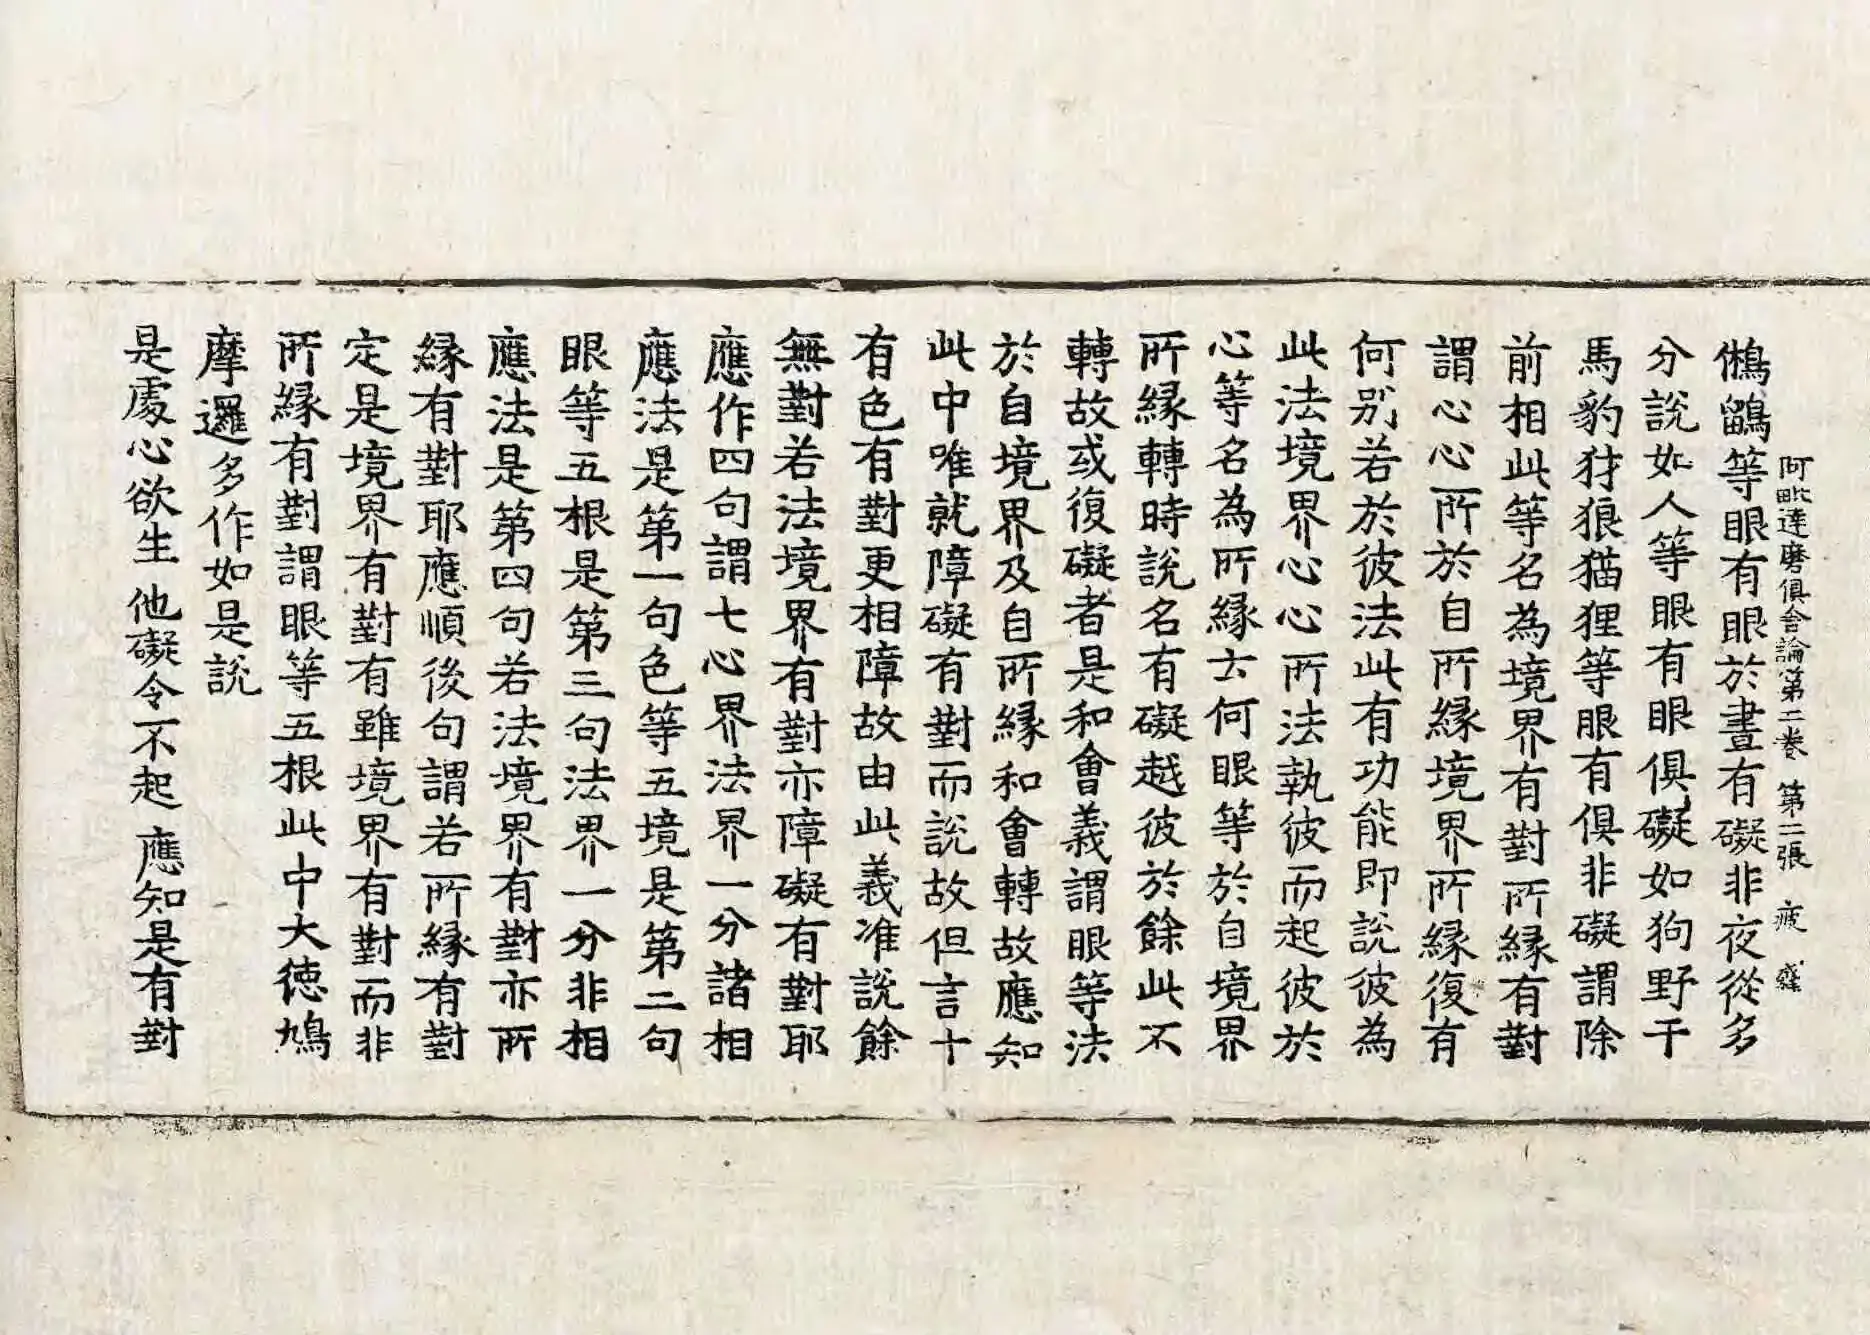 阿毗達磨俱舍論第二卷 第二張 疲
鵂鶹等眼有眼於晝有礙非夜從多
分說如人等眼有眼俱礙如狗野干
馬豹犲狼猫狸等眼有俱非礙謂除
前相此等名為境界有對所縁有對
謂心心所於自所縁境界所縁復有
何別若於彼法此有功能即說彼為
此法境界心心所法執彼而起彼於
心等名為所縁云何眼等於自境界
所縁轉時說名有礙越彼於餘此不
轉故或復礙者是和會義謂眼等法
於自境界及自所縁和會轉故應知
此中唯就障礙有對而說故但言十
有色有對更相障故由此義准說餘
無對若法境界有對亦障礙有對耶
應作四句謂七心界法界一分諸相
應法是第一句色等五境是第二句
眼等五根是第三句法界一分非相
應法是第四句若法境界有對亦所
縁有對耶應順後句謂若所縁有對
定是境界有對有雖境界有對而非
所縁有對謂眼等五根此中大德鳩
摩邏多作如是說
是處心欲生 他礙令不起 應知是有對